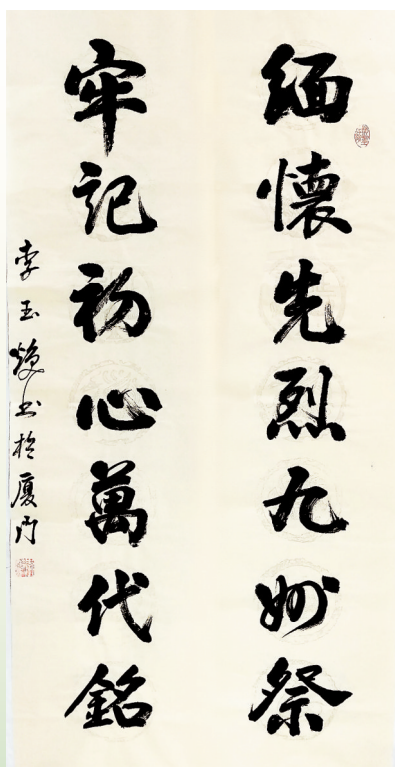 緬懷先烈九州祭
牢記初心萬代銘
李玉焕书於厦门